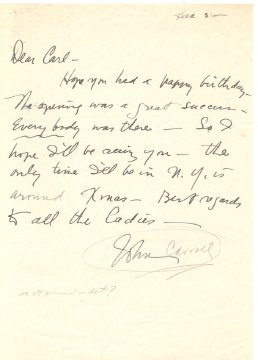 Dear Carl-
Hope you had a happy birthday-
The opening was a great success-
Everybody was there - So I
hope I'll be seeing you - the
only time I'll be in N.Y. is
around Xmas - Best regards
to all the Ladies -
John Carroll